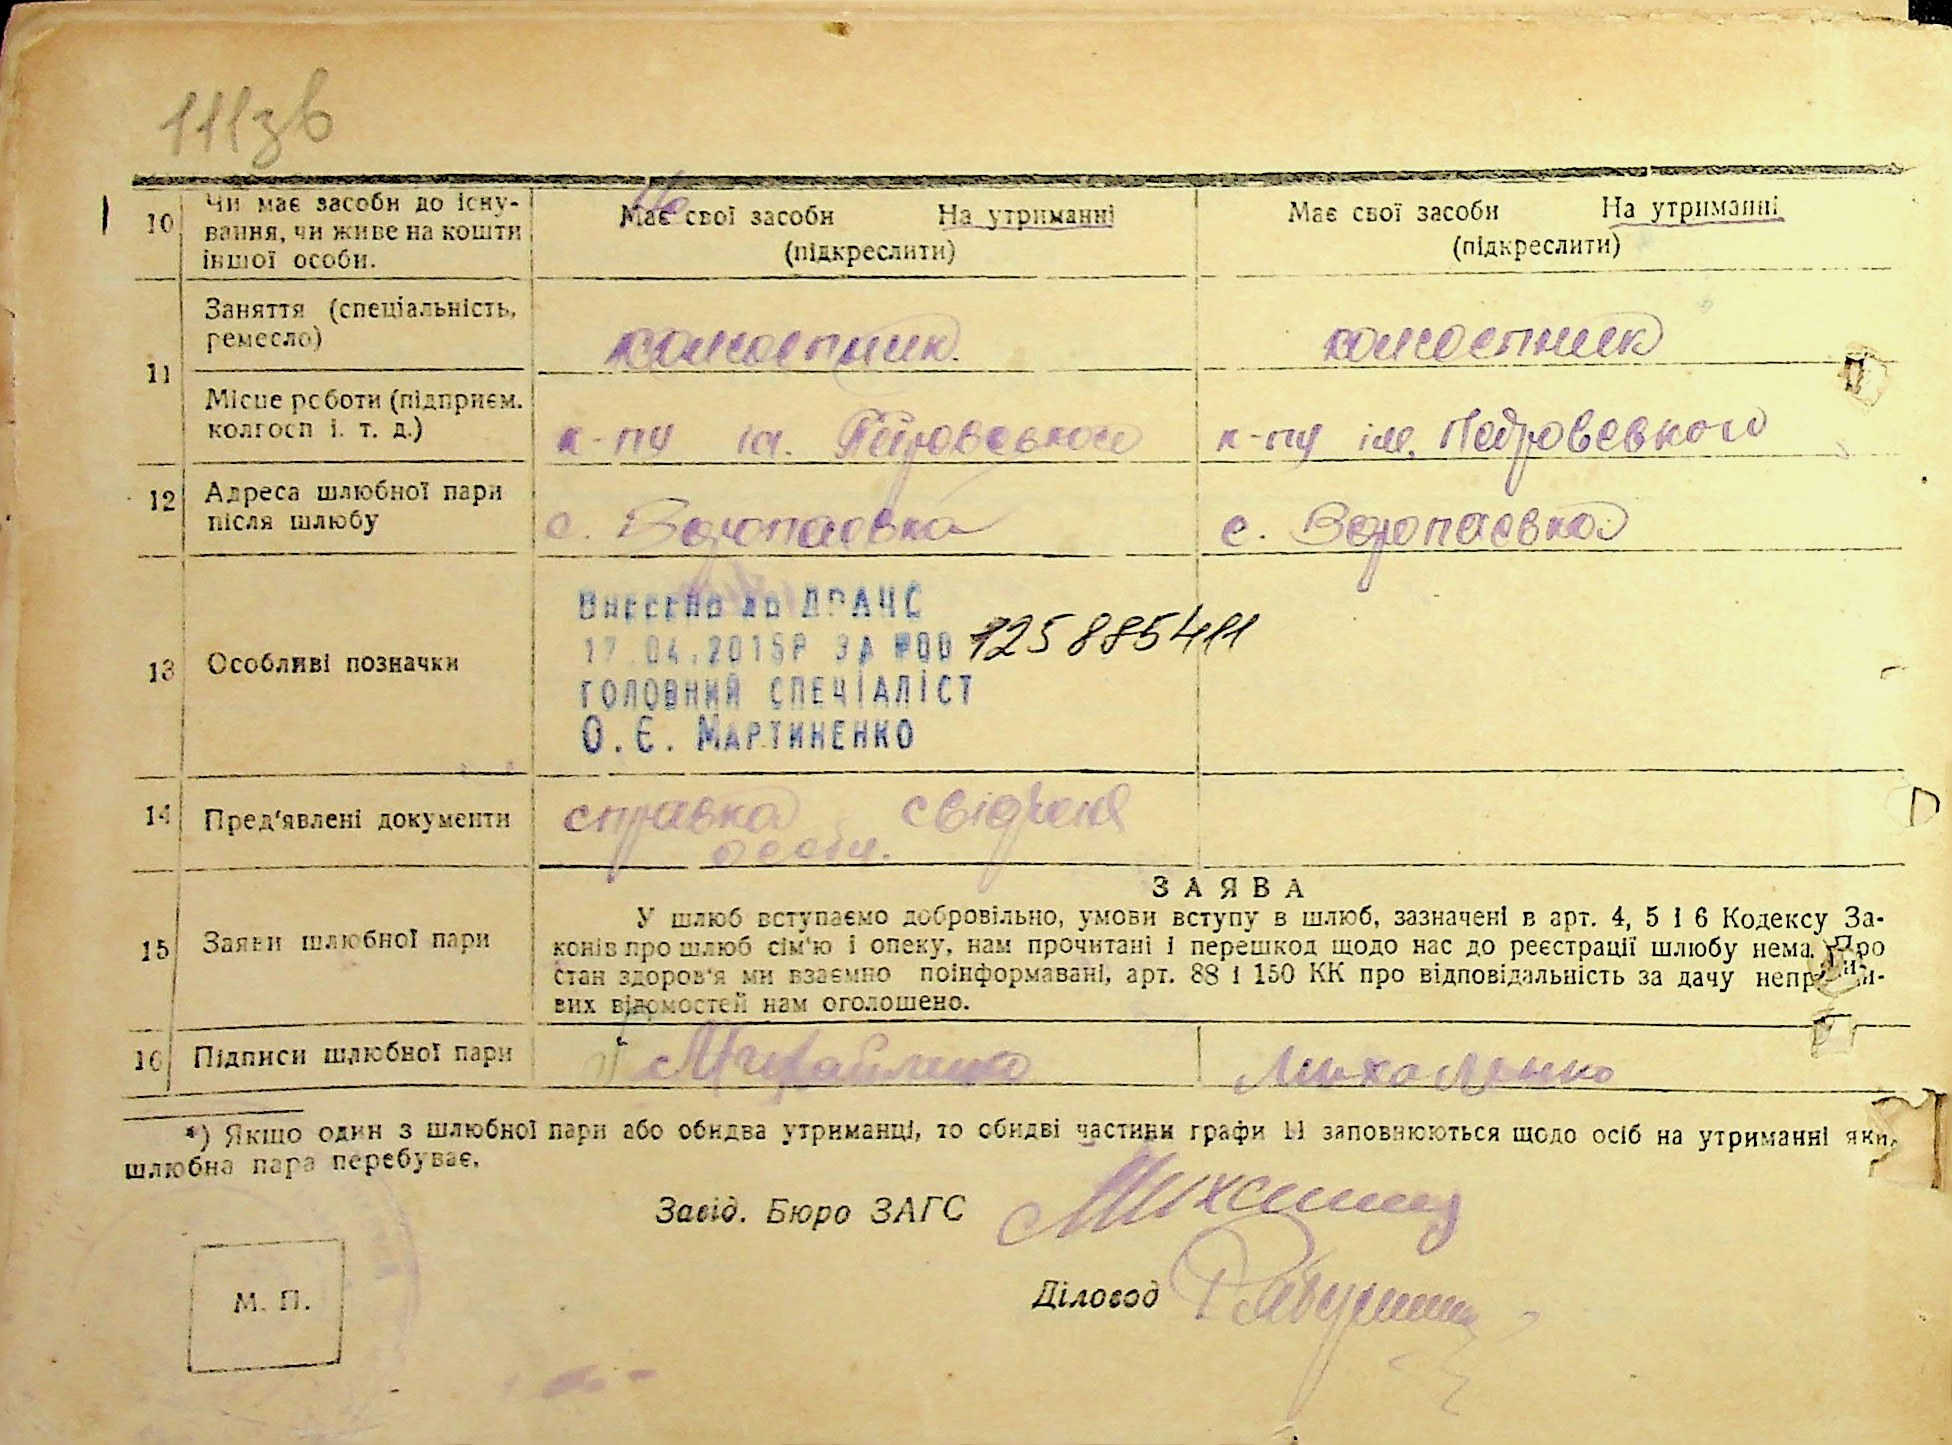 111зв
10 Чи має засоби до існу-
вання, чи живе на кошти
іншої особи.
Має свої засоби На утриманні
(підкреслити)
Має свої засоби На утриманні
(підкреслити)
11 Заняття (спеціальність,
ремесло)
колгоспник.
колгоспник
Місце роботи (підприєм.
колгосп і. т. д.)
к-пу ім. Петровського
к-пу ім. Петровського
12 Адреса шлюбної пари
після шлюбу
с. Воропаєвка
с. Воропаєвка
13 Особливі позначки
Внесено до ДРАЧС
17.04.2015Р ЗА №00 125885411
ГОЛОВНИЙ СПЕЦІАЛІСТ
О.Є. МАРТИНЕНКО
14 Пред'явлені документи
справка
особи.
15 Заяви шлюбної пари
ЗАЯВА
У шлюб вступаємо добровільно, умови вступу в шлюб, зазначені в арт. 4, 5 і 6 Кодексу За-
конів про шлюб сім'ю і опеку, нам прочитані і перешкод щодо нас до реєстрації шлюбу нема. Про
стан здоров'я ми взаємно поінформавані, арт. 88 і 150 КК про відповідальність за дачу неправди-
вих відомостей нам оголошено.
16 Підписи шлюбної пари
Михайленко
Михаленко
*) Якщо один з шлюбної пари або обидва утриманці, то обидві частини графи 11 заповнюються щодо осіб на утриманні яких
шлюбна пара перебуває.
Завід. Бюро ЗАГС
Діловод
М. П.